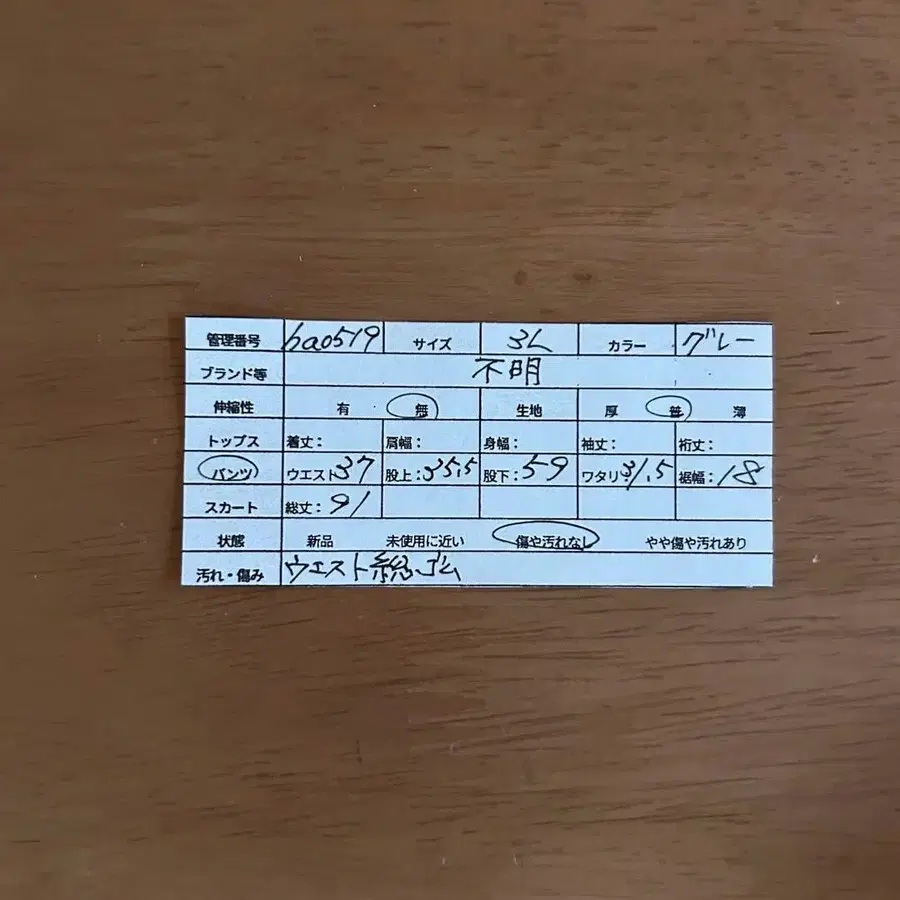 管理番号 ha0519 サイズ 3L カラー グレー
ブランド等 不明
伸縮性 有 無 生地 厚 普 薄
トップス 着丈: 肩幅: 身幅: 袖丈: 裄丈:
パンツ ウエスト37 股上:35.5 股下:59 ワタリ:31.5 裾幅:18
スカート 総丈:91
状態 新品 未使用に近い 傷や汚れなし やや傷や汚れあり
汚れ・傷み ウエスト総ゴム